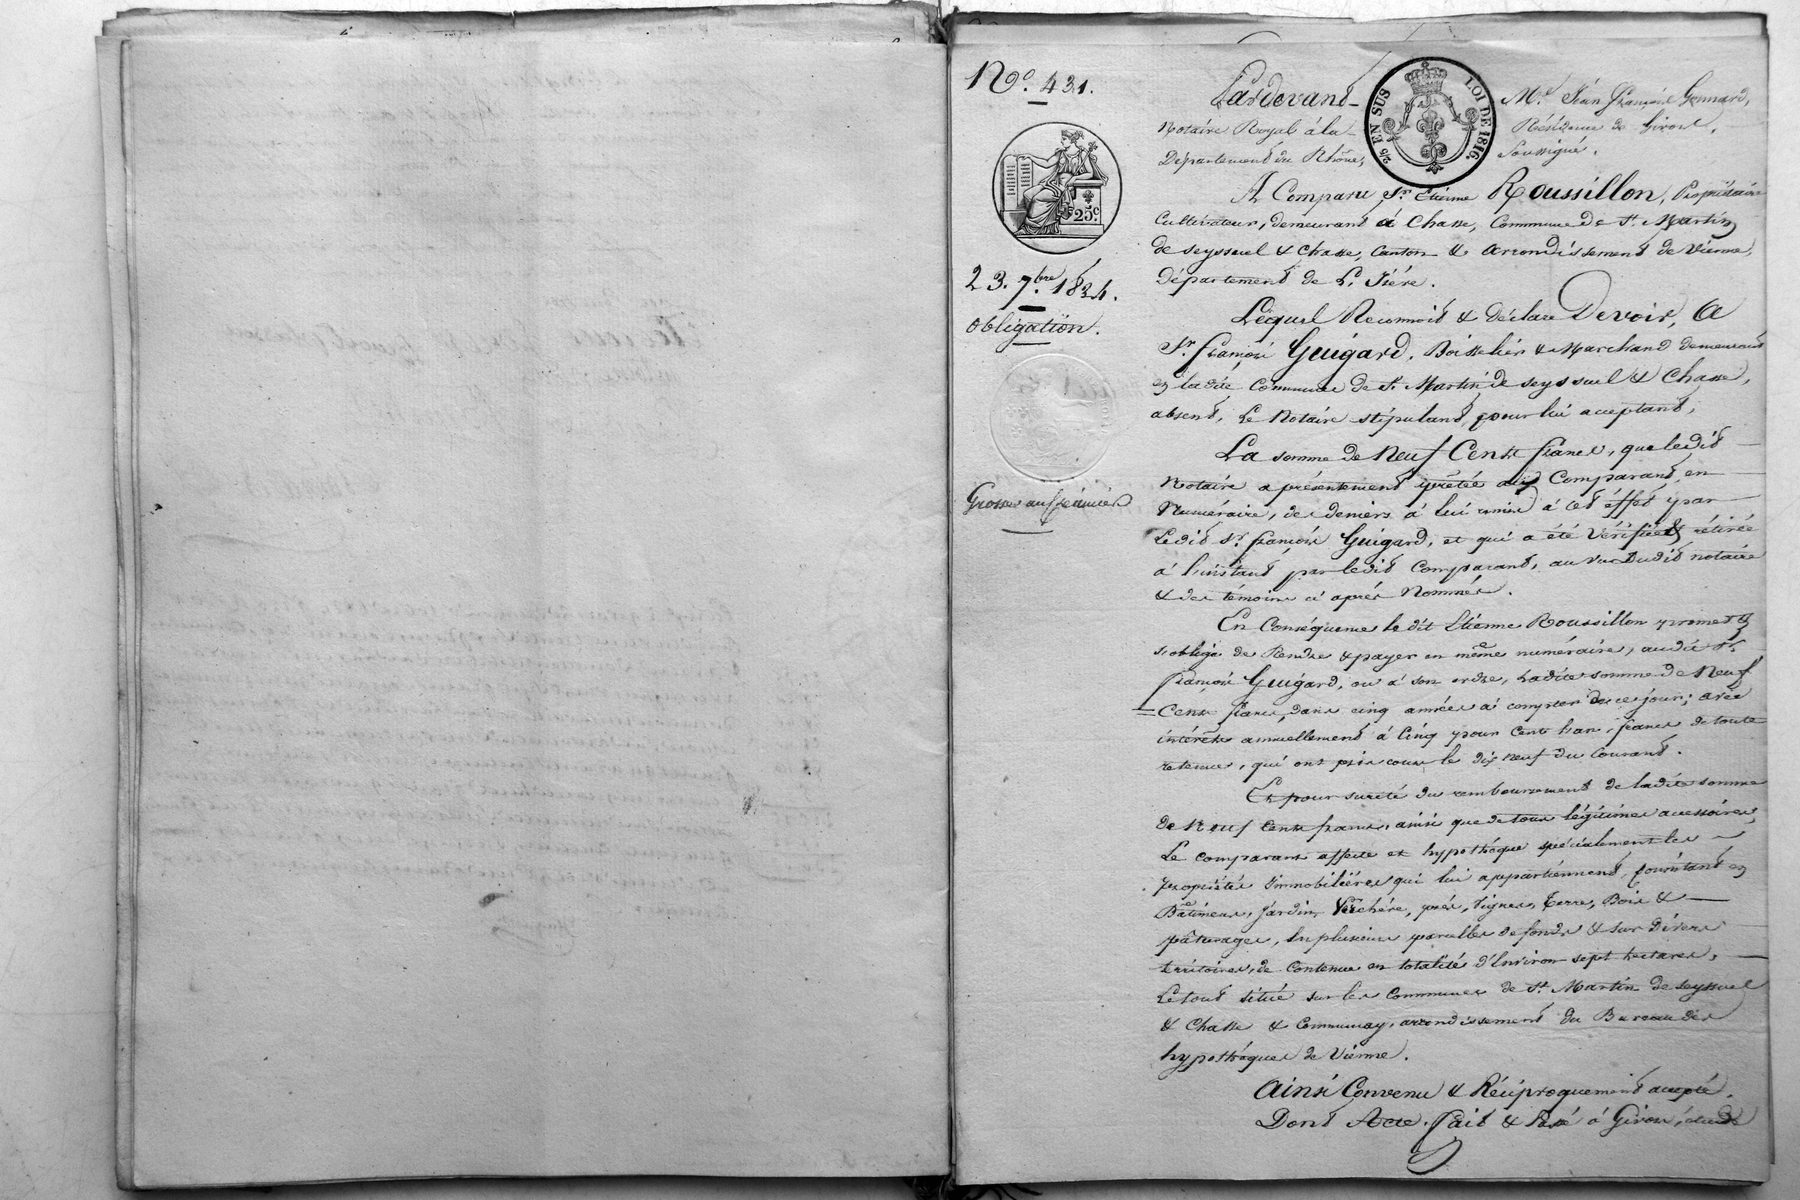 Nº. 431.
25.c
23. 7.bre 1824.
Obligation.
Grosse au créancier
25 EN SUS LOI DE 1816.
Pardevant Me. Jean François Gonnard,
Notaire Royal à la Résidence de Givors,
Département du Rhône, Soussigné.
A Comparu Sr. Etienne Roussillon, Propriétaire
Cultivateur, demeurant à Chasse, Commune de St. Martin
de Seyssuel & Chasse, Canton & arrondissement de Vienne,
Département de L'Isère.
Lequel Reconnoit & déclare Devoir, A
Sr. François Guigard, Boisselier & Marchand demeurant
en ladite Commune de St. Martin de Seyssuel & Chasse,
absent, Le Notaire stipulant pour lui acceptant,
La somme de Neuf Cents francs, que ledit
Notaire a présentement prêtée audit Comparant, en
Numéraire, des deniers à lui remis à cet effet par
Ledit Sr. François Guigard, et qui a été Vérifiée & rétirée
à l'instant par ledit Comparant, au vu dudit notaire
& des témoins ci après Nommés.
En Conséquence le dit Etienne Roussillon promet &
s'oblige de Rendre & payer en même numéraire, audit Sr.
François Guigard, ou à son ordre, ladite somme de Neuf
Cents francs, dans cinq années à compter de ce jour; avec
intérêts annuellement à Cinq pour Cent l'an, francs de toute
retenue, qui ont pris cours le dix neuf du Courant.
Et pour sureté du remboursement de ladite somme
de Neuf Cents francs, ainsi que de tous légitimes accessoires,
Le comparant affecte et hypothéque spécialement les
propriétés Immobilières qui lui appartiennent, consistant en
Bâtimens, Jardin, Verchère, prés, Vignes, Terre, Bois &
pâturages, En plusieurs parcelles de fonds & sur Divers
territoires, de Contenue en totalité d'Environ sept hectares,
Le tout situé sur les Communes de St. Martin de Seyssuel
& Chasse & Communay, arrondissement du Bureau des
hypothéques de Vienne.
Ainsi Convenu & Réciproquement accepté.
Dont Acte. Fait & Passé à Givors, étude